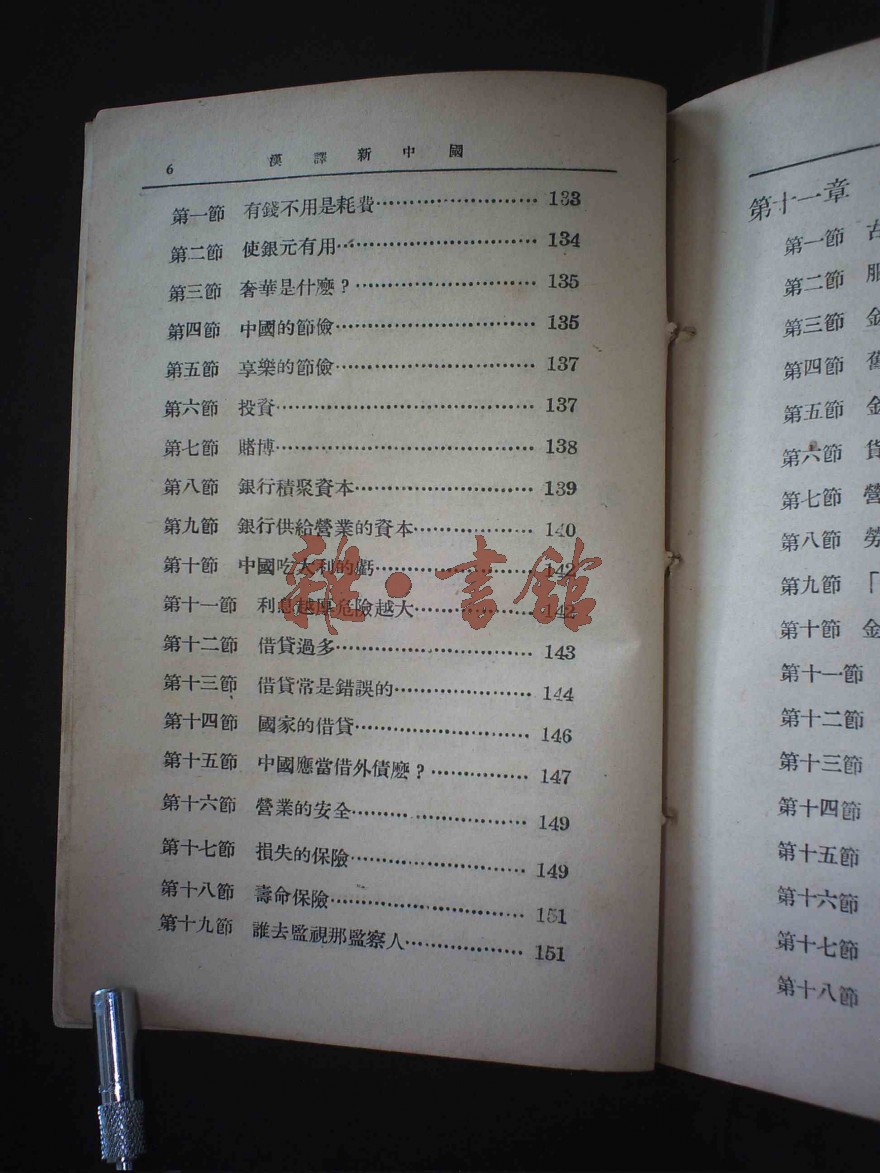 6 漢譯新中國
第一節 有錢不用是耗費……………………… 133
第二節 使銀元有用……………………… 134
第三節 奢華是什麽？……………………… 135
第四節 中國的節儉……………………… 135
第五節 享樂的節儉……………………… 137
第六節 投資……………………… 137
第七節 賭博……………………… 138
第八節 銀行積聚資本……………………… 139
第九節 銀行供給營業的資本……………… 140
第十節 中國吃大利的虧……………………… 142
第十一節 利息越厚危險越大……………… 142
第十二節 借貸過多……………………… 143
第十三節 借貸常是錯誤的……………… 144
第十四節 國家的借貸……………………… 146
第十五節 中國應當借外債麽？…………… 147
第十六節 營業的安全……………………… 149
第十七節 損失的保險……………………… 149
第十八節 壽命保險……………………… 151
第十九節 誰去監視那監察人……………… 151
雜·書館
第十一章
第一節 古
第二節 服
第三節 金
第四節 舊
第五節 金
第六節 貨
第七節 營
第八節 勞
第九節 「
第十節 金
第十一節
第十二節
第十三節
第十四節
第十五節
第十六節
第十七節
第十八節